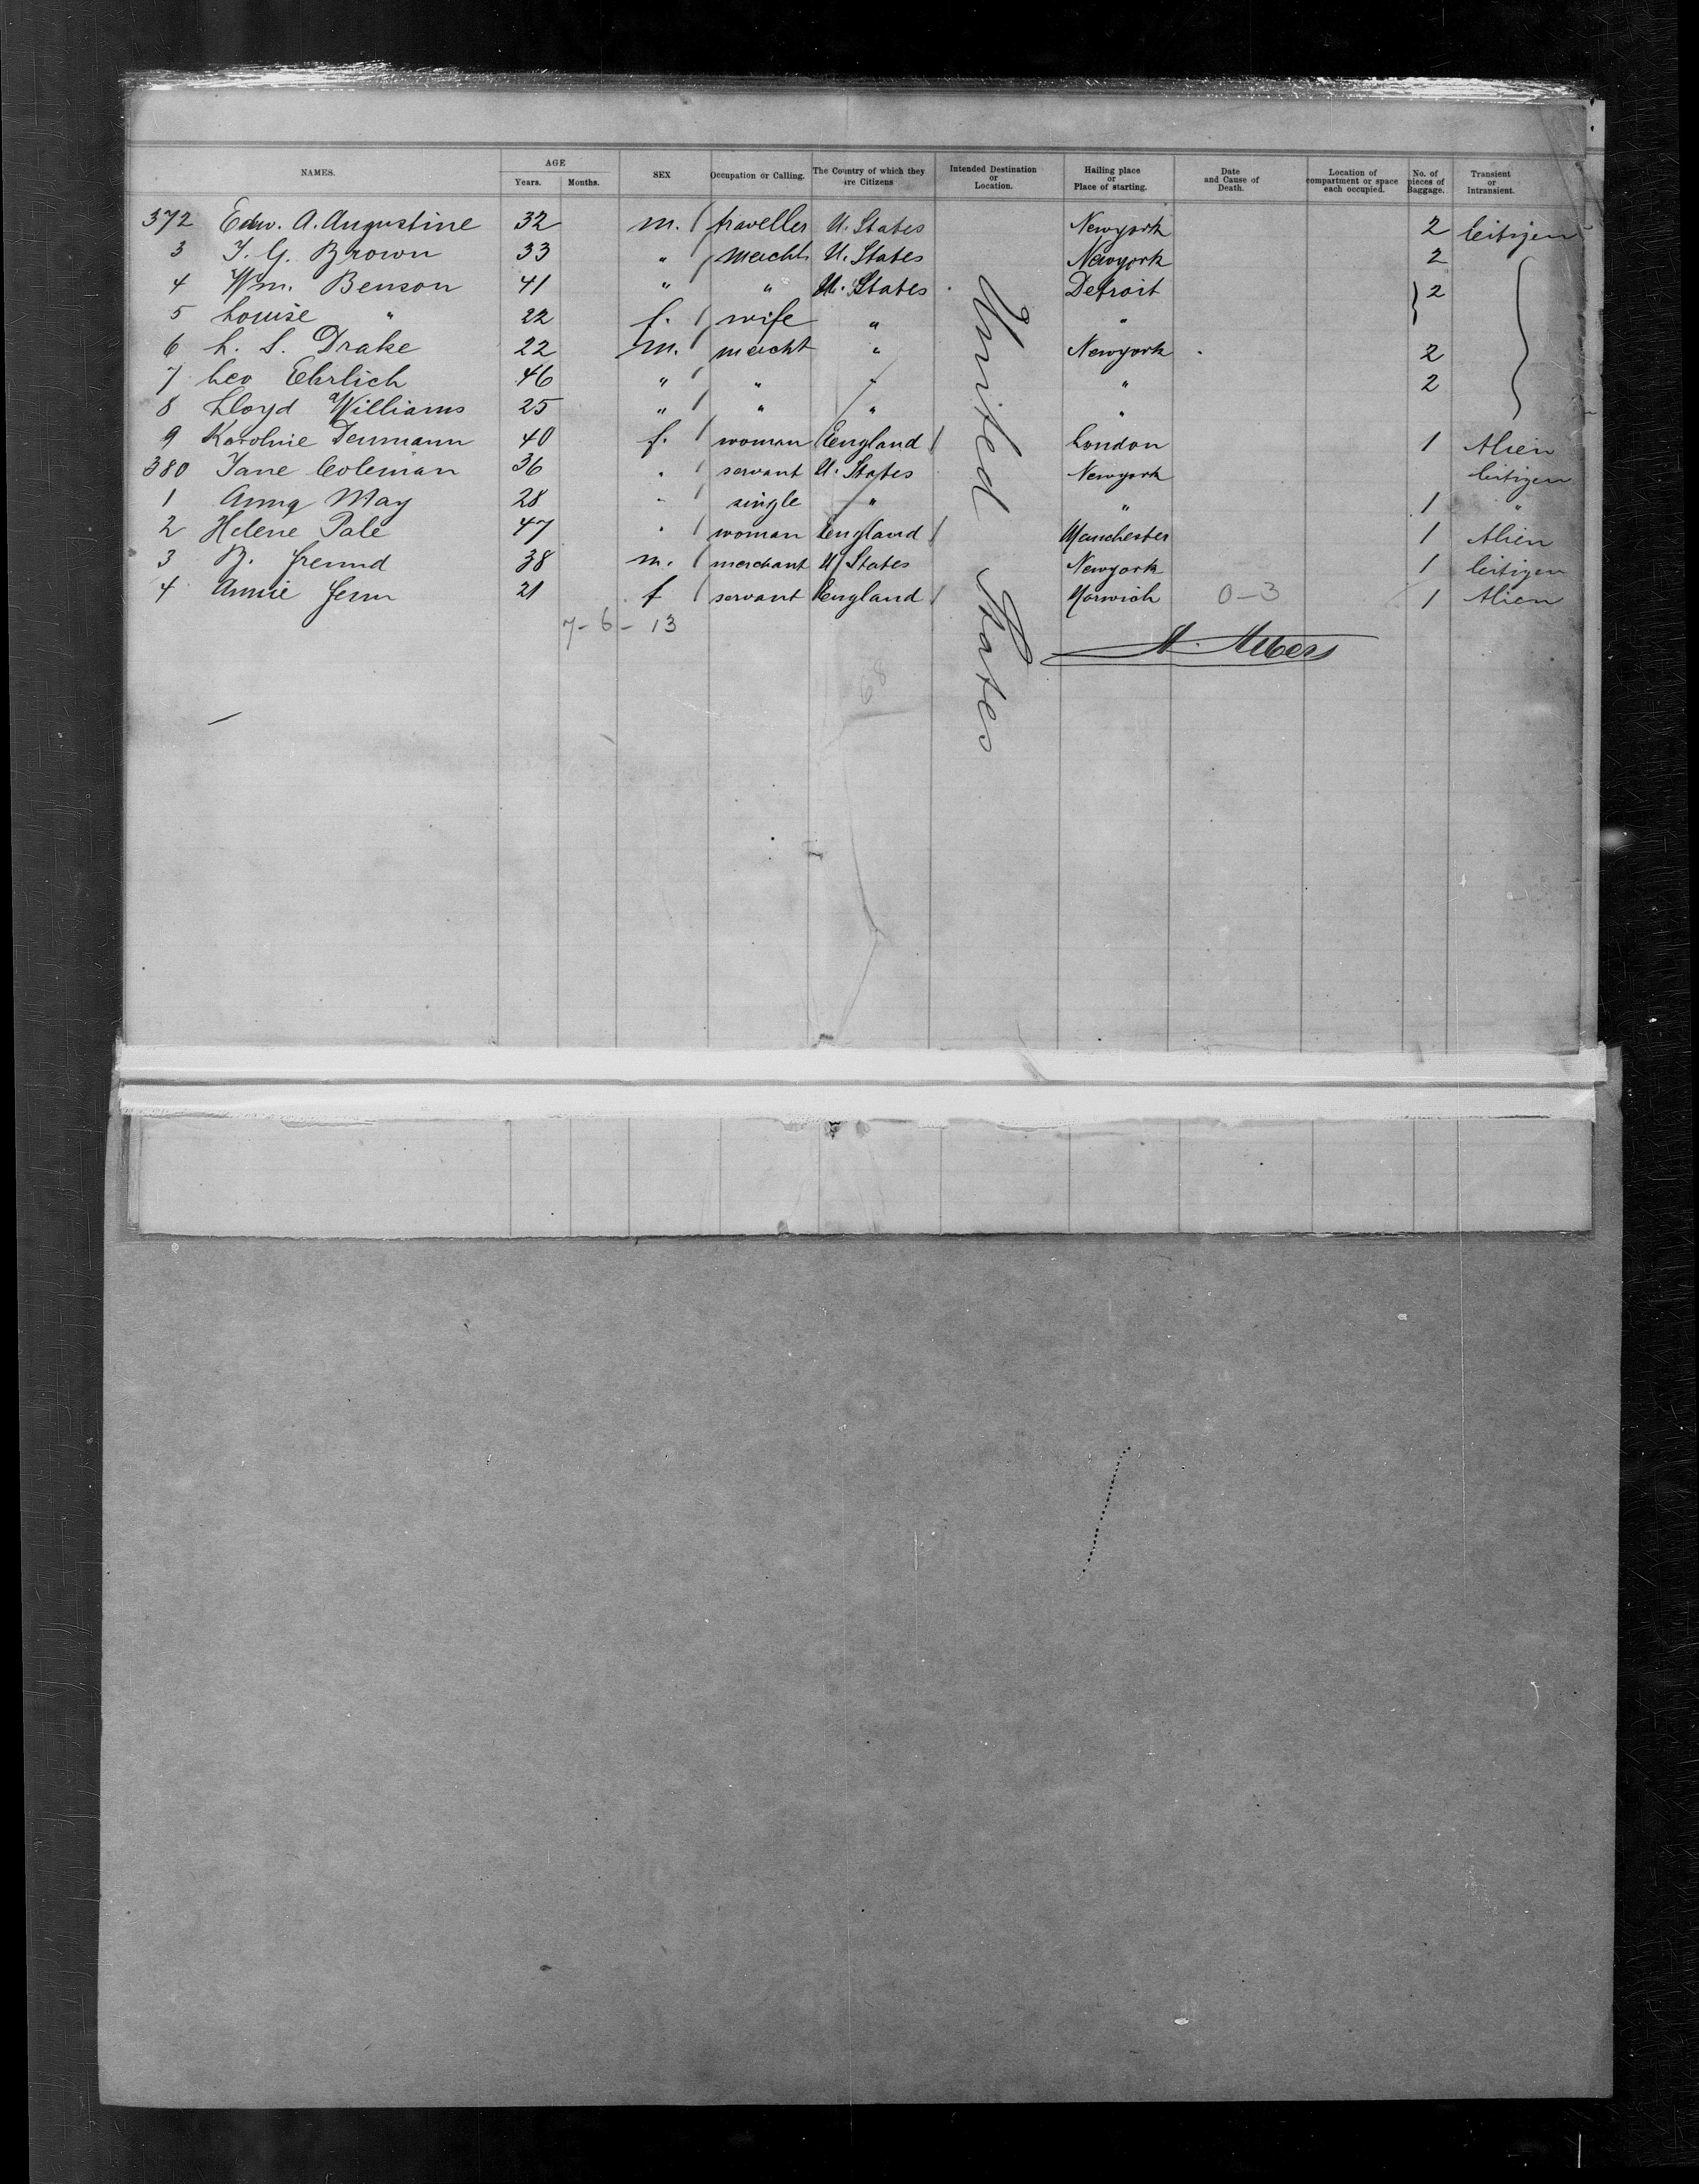 NAMES. AGE Years. Months. SEX Occupation or Calling. The Country of which they are Citizens Intended Destination or Location. Hailing place or Place of starting. Date and Cause of Death. Location of compartment or space each occupied. No. of pieces of Baggage. Transient or Intransient.
372 Edw. A. Augustine 32 m. traveller U. States Newyork 2 Citizen
3 T. G. Brown 33 " mercht U. States Newyork 2
4 Wm. Benson 41 " " U. States Detroit } 2
5 Louise " 22 f. wife " "
6 L. S. Drake 22 m. mercht " Newyork 2
7 Leo Ehrlich 46 " " " " 2
8 Lloyd Williams 25 " " " "
9 Karoline 40 f. woman England London 1 Alien
380 Jane Coleman 36 " servant U. States Newyork Citizen
1 Anna May 28 " single " " 1 "
2 Helene Pale 47 " woman England Manchester 1 Alien
3 B. Freund 38 m. merchant U. States Newyork 1 Citizen
4 Annie Fenn 21 f servant England Norwich 0-3 1 Alien
United States
7-6-13
A. Albers
68